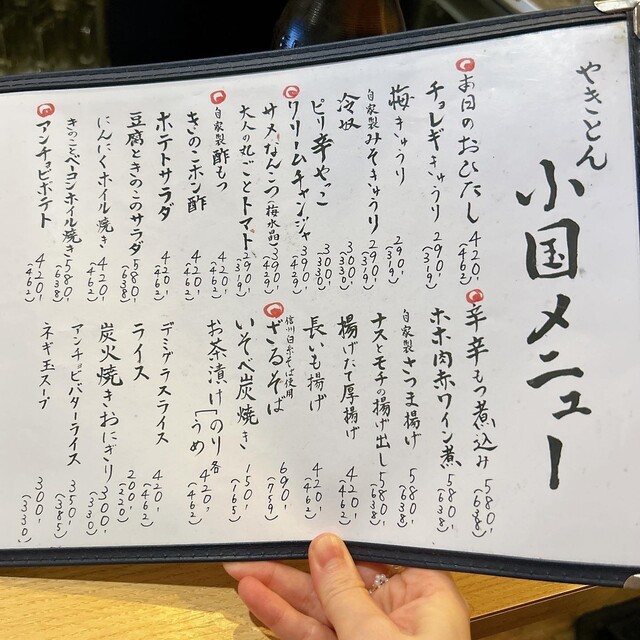 やきとん
小国メニュー
本日のおひたし 420- (462)
チョレギきゅうり 290- (319)
梅きゅうり 290- (319)
自家製みそきゅうり 290- (319)
冷奴 300- (330)
ピリ辛やっこ 300- (330)
クリームチャンジャ 390- (429)
サメなんこつ(梅水晶) 390- (429)
大人の丸ごとトマト 290- (319)
自家製 酢もつ 420- (462)
きのこポン酢 420- (462)
ポテトサラダ 420- (462)
豆腐ときのこのサラダ 580- (638)
にんにくホイル焼き 420- (462)
きのことベーコンホイル焼き 580- (638)
アンチョビポテト 420- (462)
辛辛もつ煮込み 580- (638)
ホホ肉赤ワイン煮 580- (638)
自家製さつま揚げ 580- (638)
ナスとモチの揚げ出し 580- (638)
揚げたて厚揚げ 420- (462)
長いも揚げ 420- (462)
信州白糸そば使用
ざるそば 690- (759)
いそべ炭焼き 150- (165)
お茶漬け [のり うめ 各 420- (462)
デミグラスライス 420- (462)
ライス 200- (220)
炭火焼きおにぎり 300- (330)
アンチョビバターライス 350- (385)
ネギ玉スープ 300- (330)